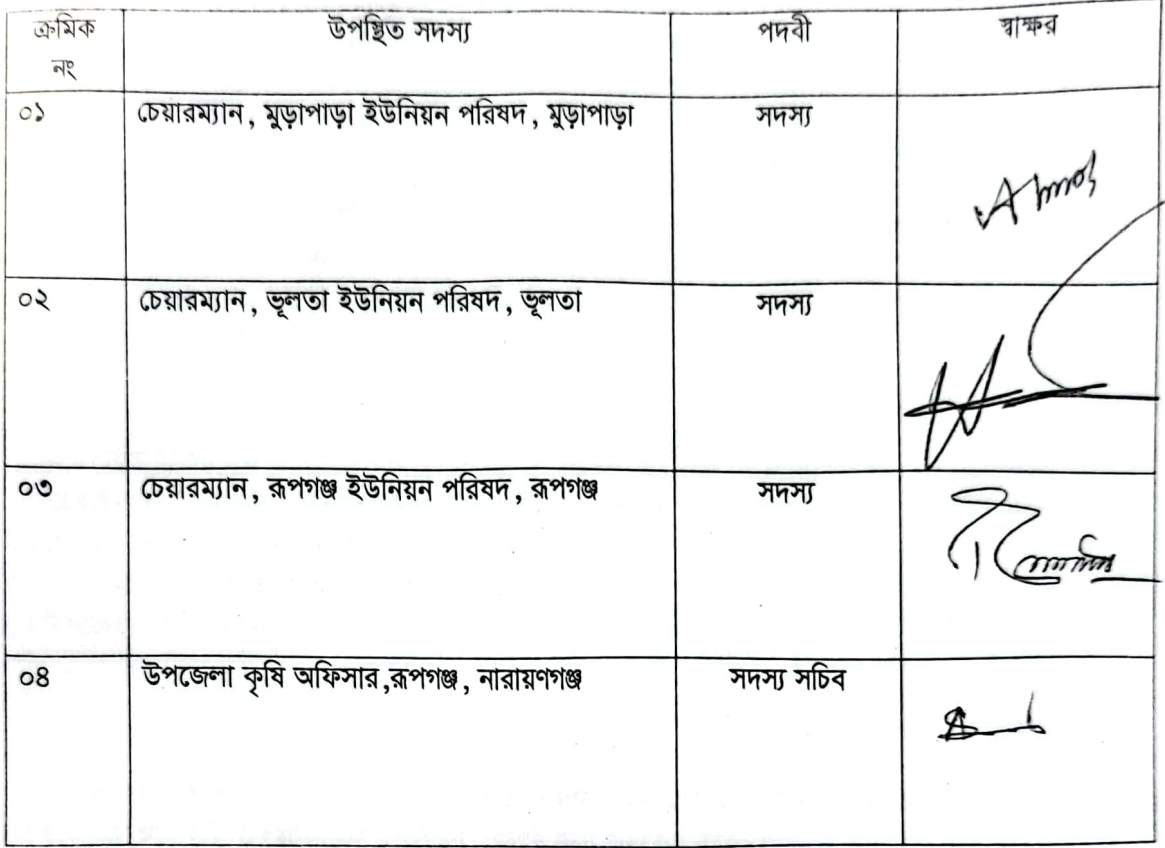 ক্রমিক নং	উপস্থিত সদস্য	পদবী	স্বাক্ষর
০১	চেয়ারম্যান, মুড়াপাড়া ইউনিয়ন পরিষদ, মুড়াপাড়া	সদস্য
০২	চেয়ারম্যান, ভূলতা ইউনিয়ন পরিষদ, ভূলতা	সদস্য
০৩	চেয়ারম্যান, রূপগঞ্জ ইউনিয়ন পরিষদ, রূপগঞ্জ	সদস্য
০৪	উপজেলা কৃষি অফিসার,রূপগঞ্জ, নারায়ণগঞ্জ	সদস্য সচিব